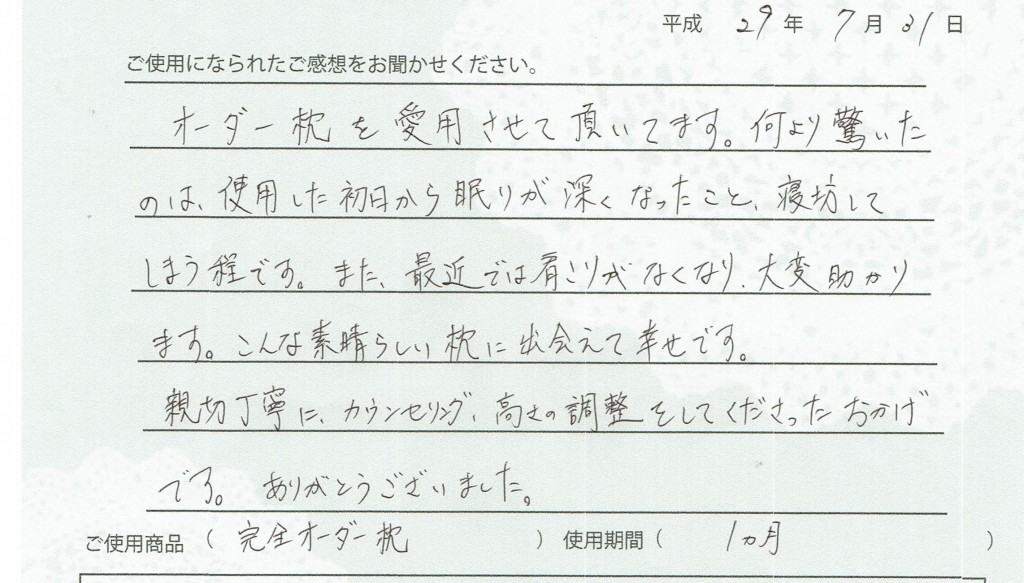 平成 29 年 7 月 31 日
ご使用になられたご感想をお聞かせください。
オーダー枕を愛用させて頂いてます。何より驚いた
のは、使用した初日から眠りが深くなったこと、寝坊して
しまう程です。また、最近では肩こりがなくなり、大変助かり
ます。こんな素晴らしい枕に出会えて幸せです。
親切丁寧に、カウンセリング、高さの調整をしてくださったおかげ
です。ありがとうございました。
ご使用商品 （ 完全オーダー枕 ） 使用期間（ 1ヵ月 ）